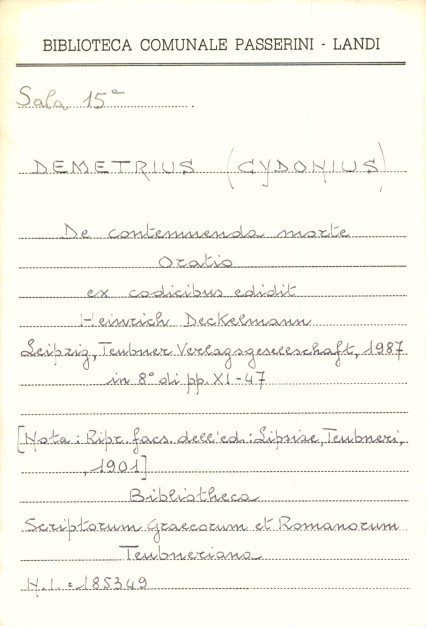 BIBLIOTECA COMUNALE PASSERINI - LANDI
Sala 15ª
DEMETRIUS (CYDONIUS)
De contemnenda morte
Oratio
ex codicibus edidit
Heinrich Deckelmann
Leipzig, Teubner Verlagsgesellschaft, 1987
in 8° di pp. XI-47
[Nota: Ripr. facs. dell'ed.: Lipsiae, Teubneri,
, 1901]
Bibliotheca
Scriptorum Graecorum et Romanorum
Teubneriana
N.I. = 185349